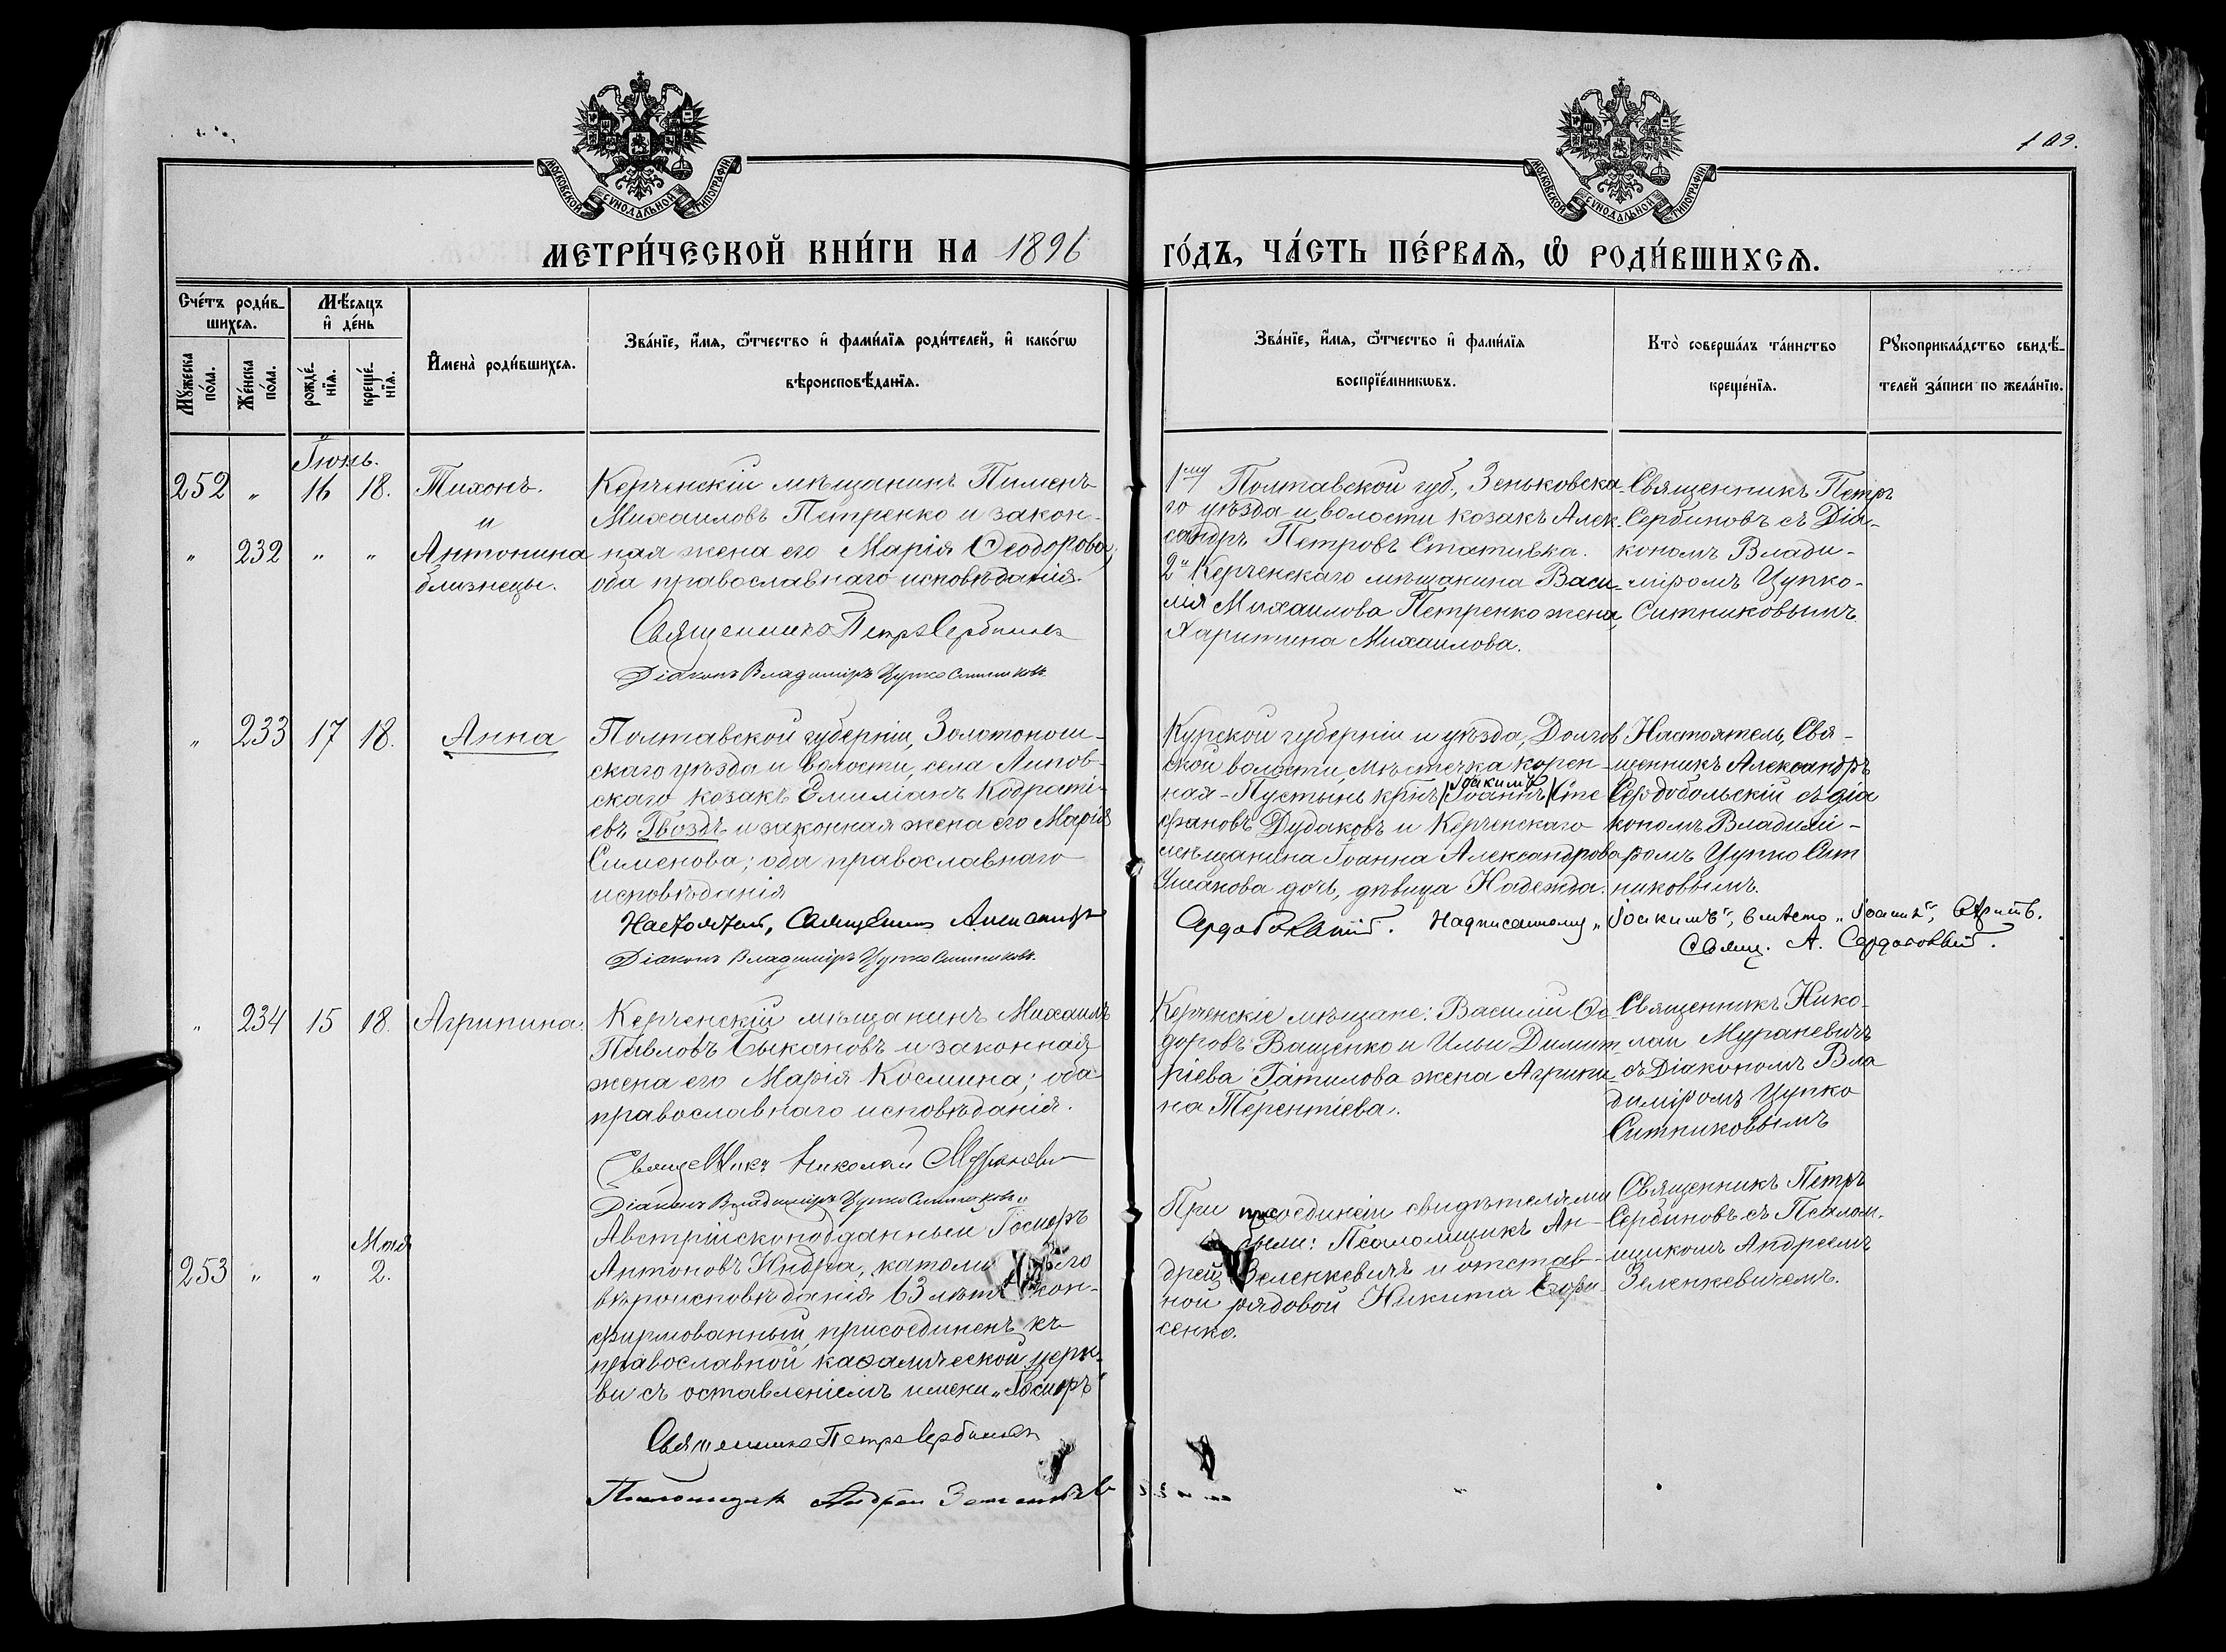 109.
МОСКОВСКОЙ СѴНОДАЛЬНОЙ ТИПОГРАФІИ
МОСКОВСКОЙ СѴНОДАЛЬНОЙ ТИПОГРАФІИ
МЕТРИ́ЧЕСКОЙ КНИ́ГИ НА 1896
ГО́ДЪ, ЧА́СТЬ ПЕ́РВАѦ, Ѡ҆ РОДИ́ВШИХСѦ.
Сче́тъ роди́в-
шихсѧ.
Мꙋ́жеска
по́ла.
Же́нска
по́ла.
Мѣ́сѧцъ
и҆ де́нь
рожде́-
нїѧ.
креще́-
нїѧ.
И҆мена̀ роди́вшихсѧ.
Зва́нїе, и҆́мѧ, ѻ҆́тчество и҆ фами́лїѧ роди́телей, и҆ како́гѡ
вѣроисповѣ́данїѧ.
Зва́нїе, и҆́мѧ, ѻ҆́тчество и҆ фами́лїѧ
воспрїе́мникѡвъ.
Кто̀ соверша́лъ та́инство
креще́нїѧ.
Рꙋкоприкла́дство свидѣ́-
телей за́писи по жела́нїю.
Іюнь.
252 " 16 18. Тихонъ.
и
" 232 " " Антонина
близнецы.
Керченскій мѣщанинъ Пименъ
Михаиловъ Петренко и закон-
ная жена его Марія Ѳеодорова;
оба православнаго исповѣданія.
Священникъ Петръ Сербиновъ
Діаконъ Владиміръ Цупко Ситниковъ.
1му Полтавской губ., Зеньковска-
го уѣзда и волости козакъ Алек-
сандръ Петровъ Стативка.
2й Керченскаго мѣщанина Васи-
лія Михаилова Петренко жена,
Харитина Михаилова.
Священникъ Петръ
Сербиновъ съ Діа-
кономъ Влади-
міромъ Цупко-
Ситниковымъ
" 233 17 18. Анна
Полтавской губерніи, Золотонош-
скаго уѣзда и волости, села Липов-
скаго козакъ Емиліанъ Кодрати-
евъ Гвоздь и законная жена его Марія
Сименова; оба православнаго
исповѣданія
Настоятель, Священникъ Александръ
Діаконъ Владиміръ Цупко Ситниковъ.
Курской губерніи и уѣзда, Долгов
ской волости, мѣстечка корен-
Іоакимъ
ная-Пустынь крнъ /Іоаннъ/ Сте
фановъ Дудаковъ и Керченскаго
мѣщанина Іоанна Александрова
Ушакова дочь, дѣвица Надежда.
Сердобольскій. Надписанному „Іоакимъ", вмѣсто „Іоаннъ", вѣрить.
Свящ. А. Сердобольскій.
Настоятель, Свя-
щенникъ Александръ
Сердобольскій съ діа
кономъ Владимі-
ромъ Цупко Сит
никовымъ.
" 234 15 18. Агрипина.
Керченскій мѣщанинъ Михаилъ
Павловъ Цыкановъ и законная
жена его Марія Космина; оба
православнаго исповѣданія.
Священникъ Николай Мураневичъ
Діаконъ Владиміръ Цупко Ситниковъ
Керченскіе мѣщане: Василій Ѳео-
доровъ Ващенко и Ильи Димит-
ріева Гатилова жена Агрипи-
на Терентіева.
Священникъ Нико-
лай Мураневичъ
съ Діакономъ Вла
диміромъ Цупко
Ситниковымъ
Мая
253 " " 2.
Австрійскоподданный Іосифъ
Антоновъ Индра,
вѣроисповѣданія 63 лѣтъ кон-
фирмованный, присоединенъ къ
православной каѳалической церк-
ви съ оставленіемъ имени „Іосифъ"
Священникъ Петръ Сербиновъ
Псаломщикъ Андрей Зеленкевичъ
При присоединеніи свидѣтелями
были: Псаломщикъ Ан-
дрей Зеленкевичъ и отстав-
ной рядовой Никита Бори-
сенко.
Священникъ Петръ
Сербиновъ съ Псалом-
щикомъ Андреемъ
Зеленкевичемъ.